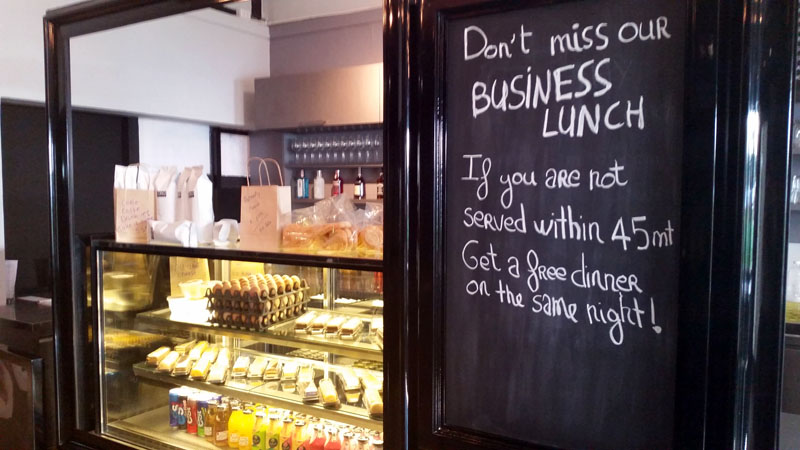 Don't miss OUR
BUSINESS
LUNCH
If you are not
served within 45mt
Get a free dinner
on the same night!